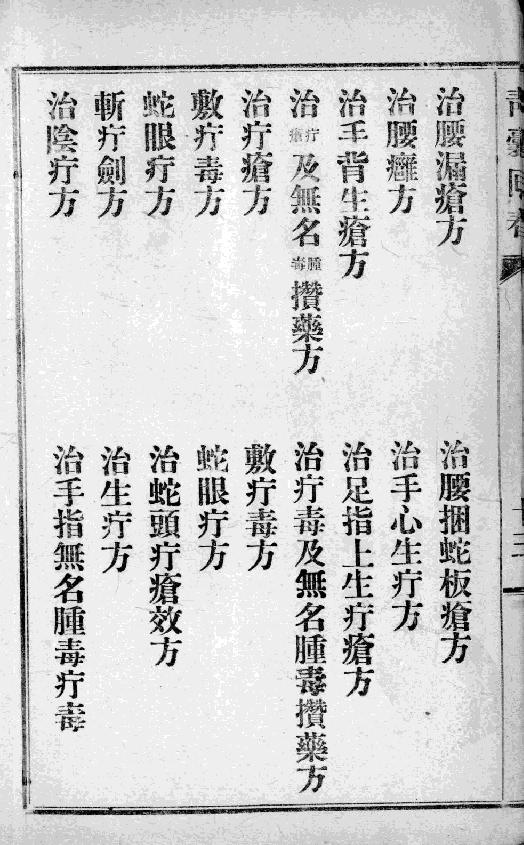 治腰漏瘡方
治腰捆蛇板瘡方
治腰癰方
治手心生疔方
治手背生瘡方
治足指上生疔瘡方
治疔瘡及無名腫毒攢藥方
治疔毒及無名腫毒攢藥方
治疔瘡方
敷疔毒方
敷疔毒方
蛇眼疔方
蛇眼疔方
治蛇頭疔瘡效方
斬疔劍方
治生疔方
治陰疔方
治手指無名腫毒疔毒